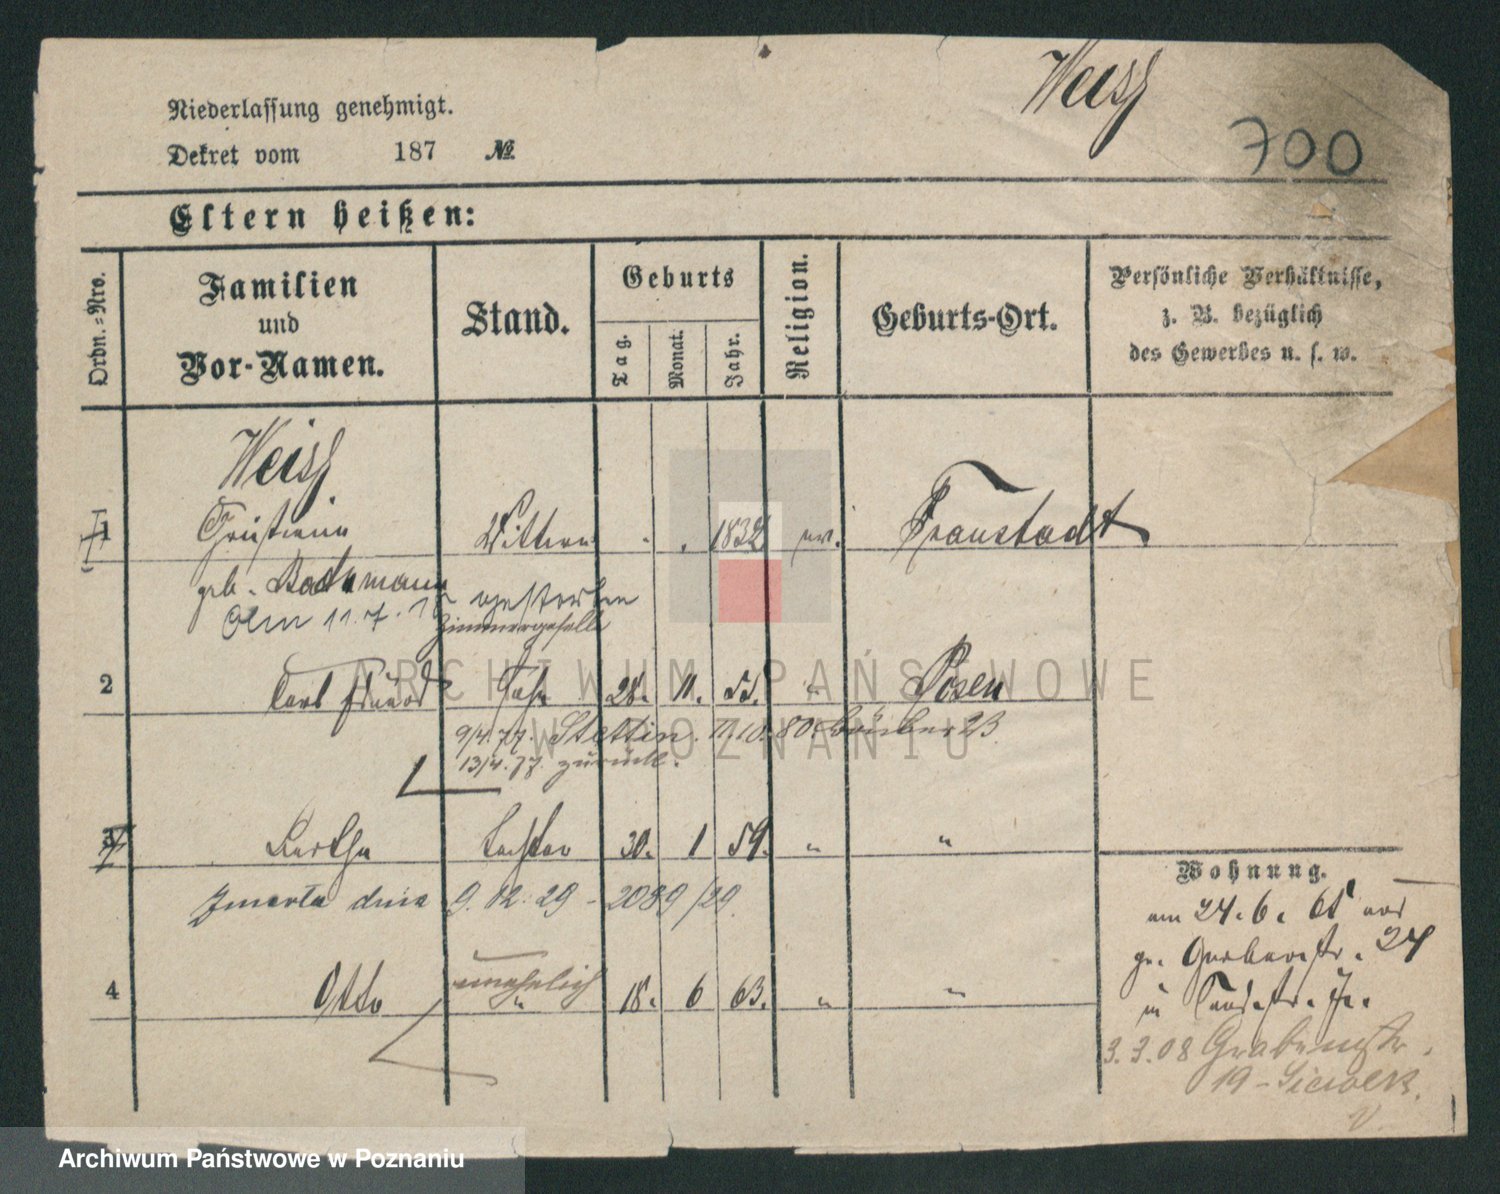 Weiss
700
Niederlassung genehmigt.
Dekret vom 187 №
Eltern heißen:
Ordn.=Nro.
Familien
und
Vor-Namen.
Stand.
Geburts
Tag.
Monat.
Jahr.
Religion.
Geburts-Ort.
Persönliche Verhältnisse,
z. B. bezüglich
des Gewerbes u. s. w.
Weiss
1 Wittwe 1832 ev. Fraustadt
geb.
Am 11.7. gestorben
Zimmergeselle
2 Carl Eduard Sohn 28. 11. 55. " Posen
9/4.77. Stettin. 11.10.80.
13/4.77. zurück.
3 Bertha Tochter 30. 1 59. " "
Zmarła dnia 9.12.29 - 2089/29.
unehelich
4 Otto " 18. 6 63. " "
Wohnung.
am 24. 6. 65
gr. Gerberstr. 24
3.3.08 Grabenstr.
19 -
ARCHIWUM PAŃSTWOWE
W POZNANIU
Archiwum Państwowe w Poznaniu